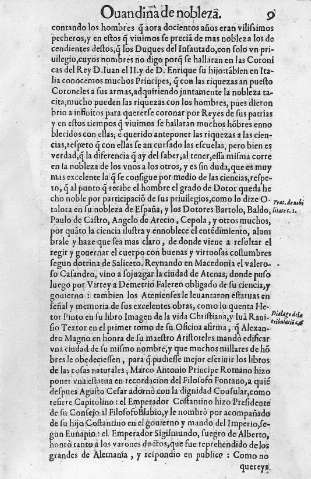 Ouandina de nobleza. 9
contando los hombres q̃ aora docientos años eran vilissimos
pecheros, y en estos q̃ viuimos se preciã de mas nobleza los de
cendientes destos, q̃ los Duques del Infautado, con solo vn pri
uilegio, cuyos nombres no digo porq̃ se hallaran en las Coroni
cas del Rey D. Iuan el II. y de D. Enrique su hijo: tãbien en Ita
lia conocemos muchos Principes, q̃ con las riquezas an puesto
Coroneles a sus armas, adquiriendo juntamente la nobleza ta
cita, mucho pueden las riquezas con los hombres, pues dieron
brio a infinitos para querersе coronar por Reyes de sus patrias
y en estos tiempos q̃ viuimos se hallaran muchos hõbres enno
blecidos con ellas; è querido anteponer las riquezas a las cien
cias, respeto q̃ con ellas se an cursado las escuelas, pero bien es
verdad, q̃ la diferencia q̃ ay del saber, al tener, essa misma corre
en la nobleza de los vnos a los otros, y es sin duda, que es muy
mas excelente la q̃ se consigue por medio de las ciencias, respe-
to, q̃ al punto q̃ recibe el hombre el grado de Dotor queda he
cho noble por participació de sus priuilegios, como lo dize O-
talora en su nobleza de España, y los Dotores Bartolo, Baldo,
Paulo de Castro, Angelo de Arecio, Cepola, y otros muchos,
por quãto la ciencia ilustra y ennoblece el entẽdimiento, alum
brale y haze que sea mas claro, de donde viene a resoltar el
regir y gouernar el cuerpo con buenas y virtuosas costumbres
segun dotrina de Salicero. Reynando en Macedonia el valero-
so Casandro, vino a sojuzgar la ciudad de Atenas, donde puso
luego por Virrey a Demetrio Falereo obligado de su ciencia, y
gouierno: tambien los Atenienses le leuantaron estatuas en
señal y memoria de sus excelentes obras, como lo quenta He
tor Pinto en su libro Imagen de la vida Christiana, y Iuã Raui-
sio Textor en el primer tomo de su Oficina afirma, q̃ Alexan-
dro Magno en honra de su maestro Aristoteles mandò edificar
vna ciudad de su mismo nombre, y que muchos millares de hõ
bres le obedeciessen, para q̃ pudiesse mejor escriuir los libros
de las cosas naturales, Marco Antonio Principe Romano hizo
poner vna estatua en recordacion del Filosofo Fontano, a quiẽ
despues Agusto Cesar adornò con la dignidad Cõsular, como
refiere Capitolino: el Emperador Costantino hizo Presidente
de su Consejo al Filosofo Blabio, y le nombrò por acompañado
de su hijo Costantino en el gouierno y mando del Imperio, se-
gun Eunapio: el Emperador Sigismundo, suegro de Alberto,
honrò tanto a los varones doctos, que fue reprehendido de los
grandes de Alemania, y respondio en publico: Como no
quereys